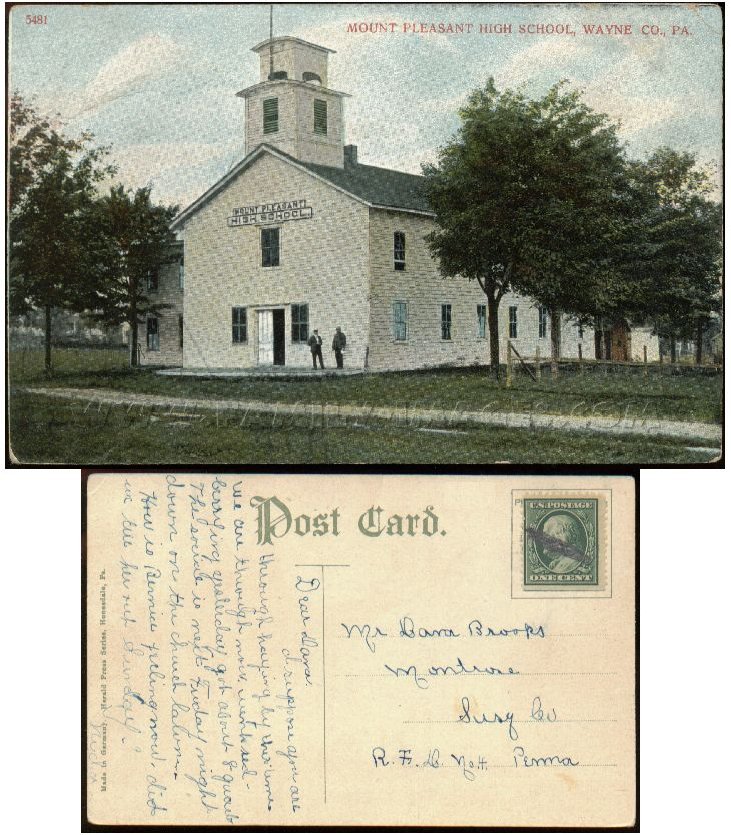 5481
MOUNT PLEASANT HIGH SCHOOL, WAYNE CO., PA.
MOUNT PLEASANT
HIGH SCHOOL
Post Card.
U.S. POSTAGE
ONE CENT
Mr Dana Brooks
Montrose
Susq Co
R.F.D. No 4. Penna
Dear Dana.
I suppose you are
through haying by this time
we are through now, went red-
berrying yesterday got about 8 quarts
The social is next Friday night
down on the church lawn.
How is Bernice feeling now. did
we tire her out Sunday?
Made in Germany. Herald Press Series, Honesdale, Pa.